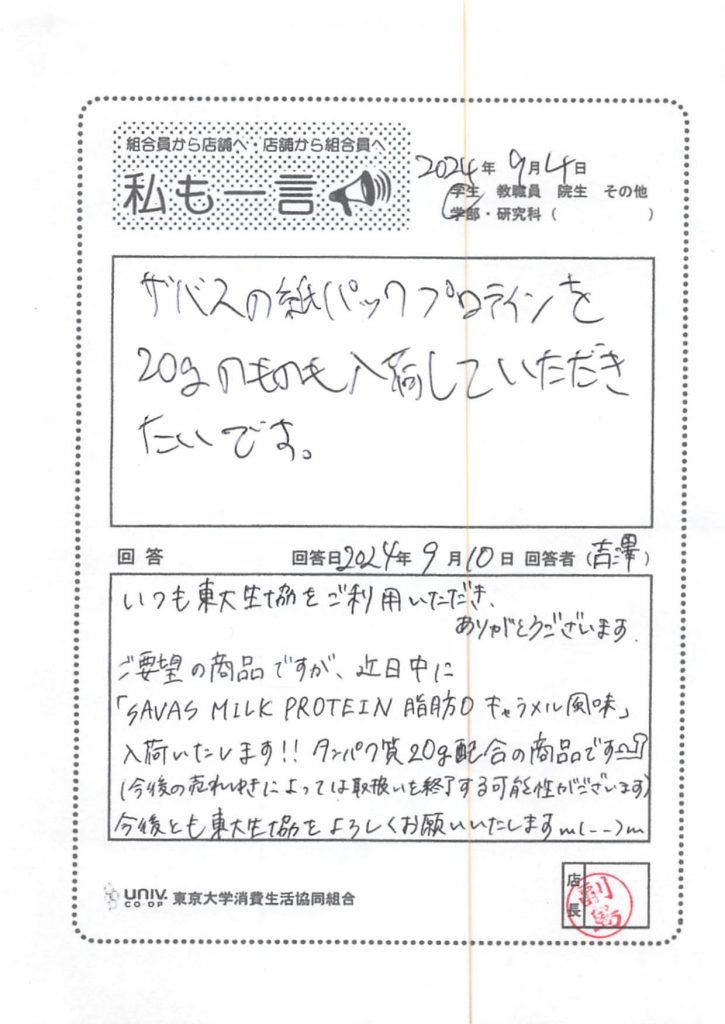 組合員から店舗へ・店舗から組合員へ
私も一言
2024年 9月4日
学生 教職員 院生 その他
学部・研究科( )
ザバスの紙パックプロテインを
20gのものも入荷していただき
たいです。
回答 回答日2024年 9月10日 回答者(吉澤)
いつも東大生協をご利用いただき、
ありがとうございます.
ご要望の商品ですが、近日中に
「SAVAS MILK PROTEIN 脂肪0 キャラメル風味」
入荷いたします!! タンパク質20g配合の商品です
(今後の売れゆきによっては取扱いを終了する可能性がございます)
今後とも東大生協をよろしくお願いいたします m(--)m
UNIV. CO-OP 東京大学消費生活協同組合
店長